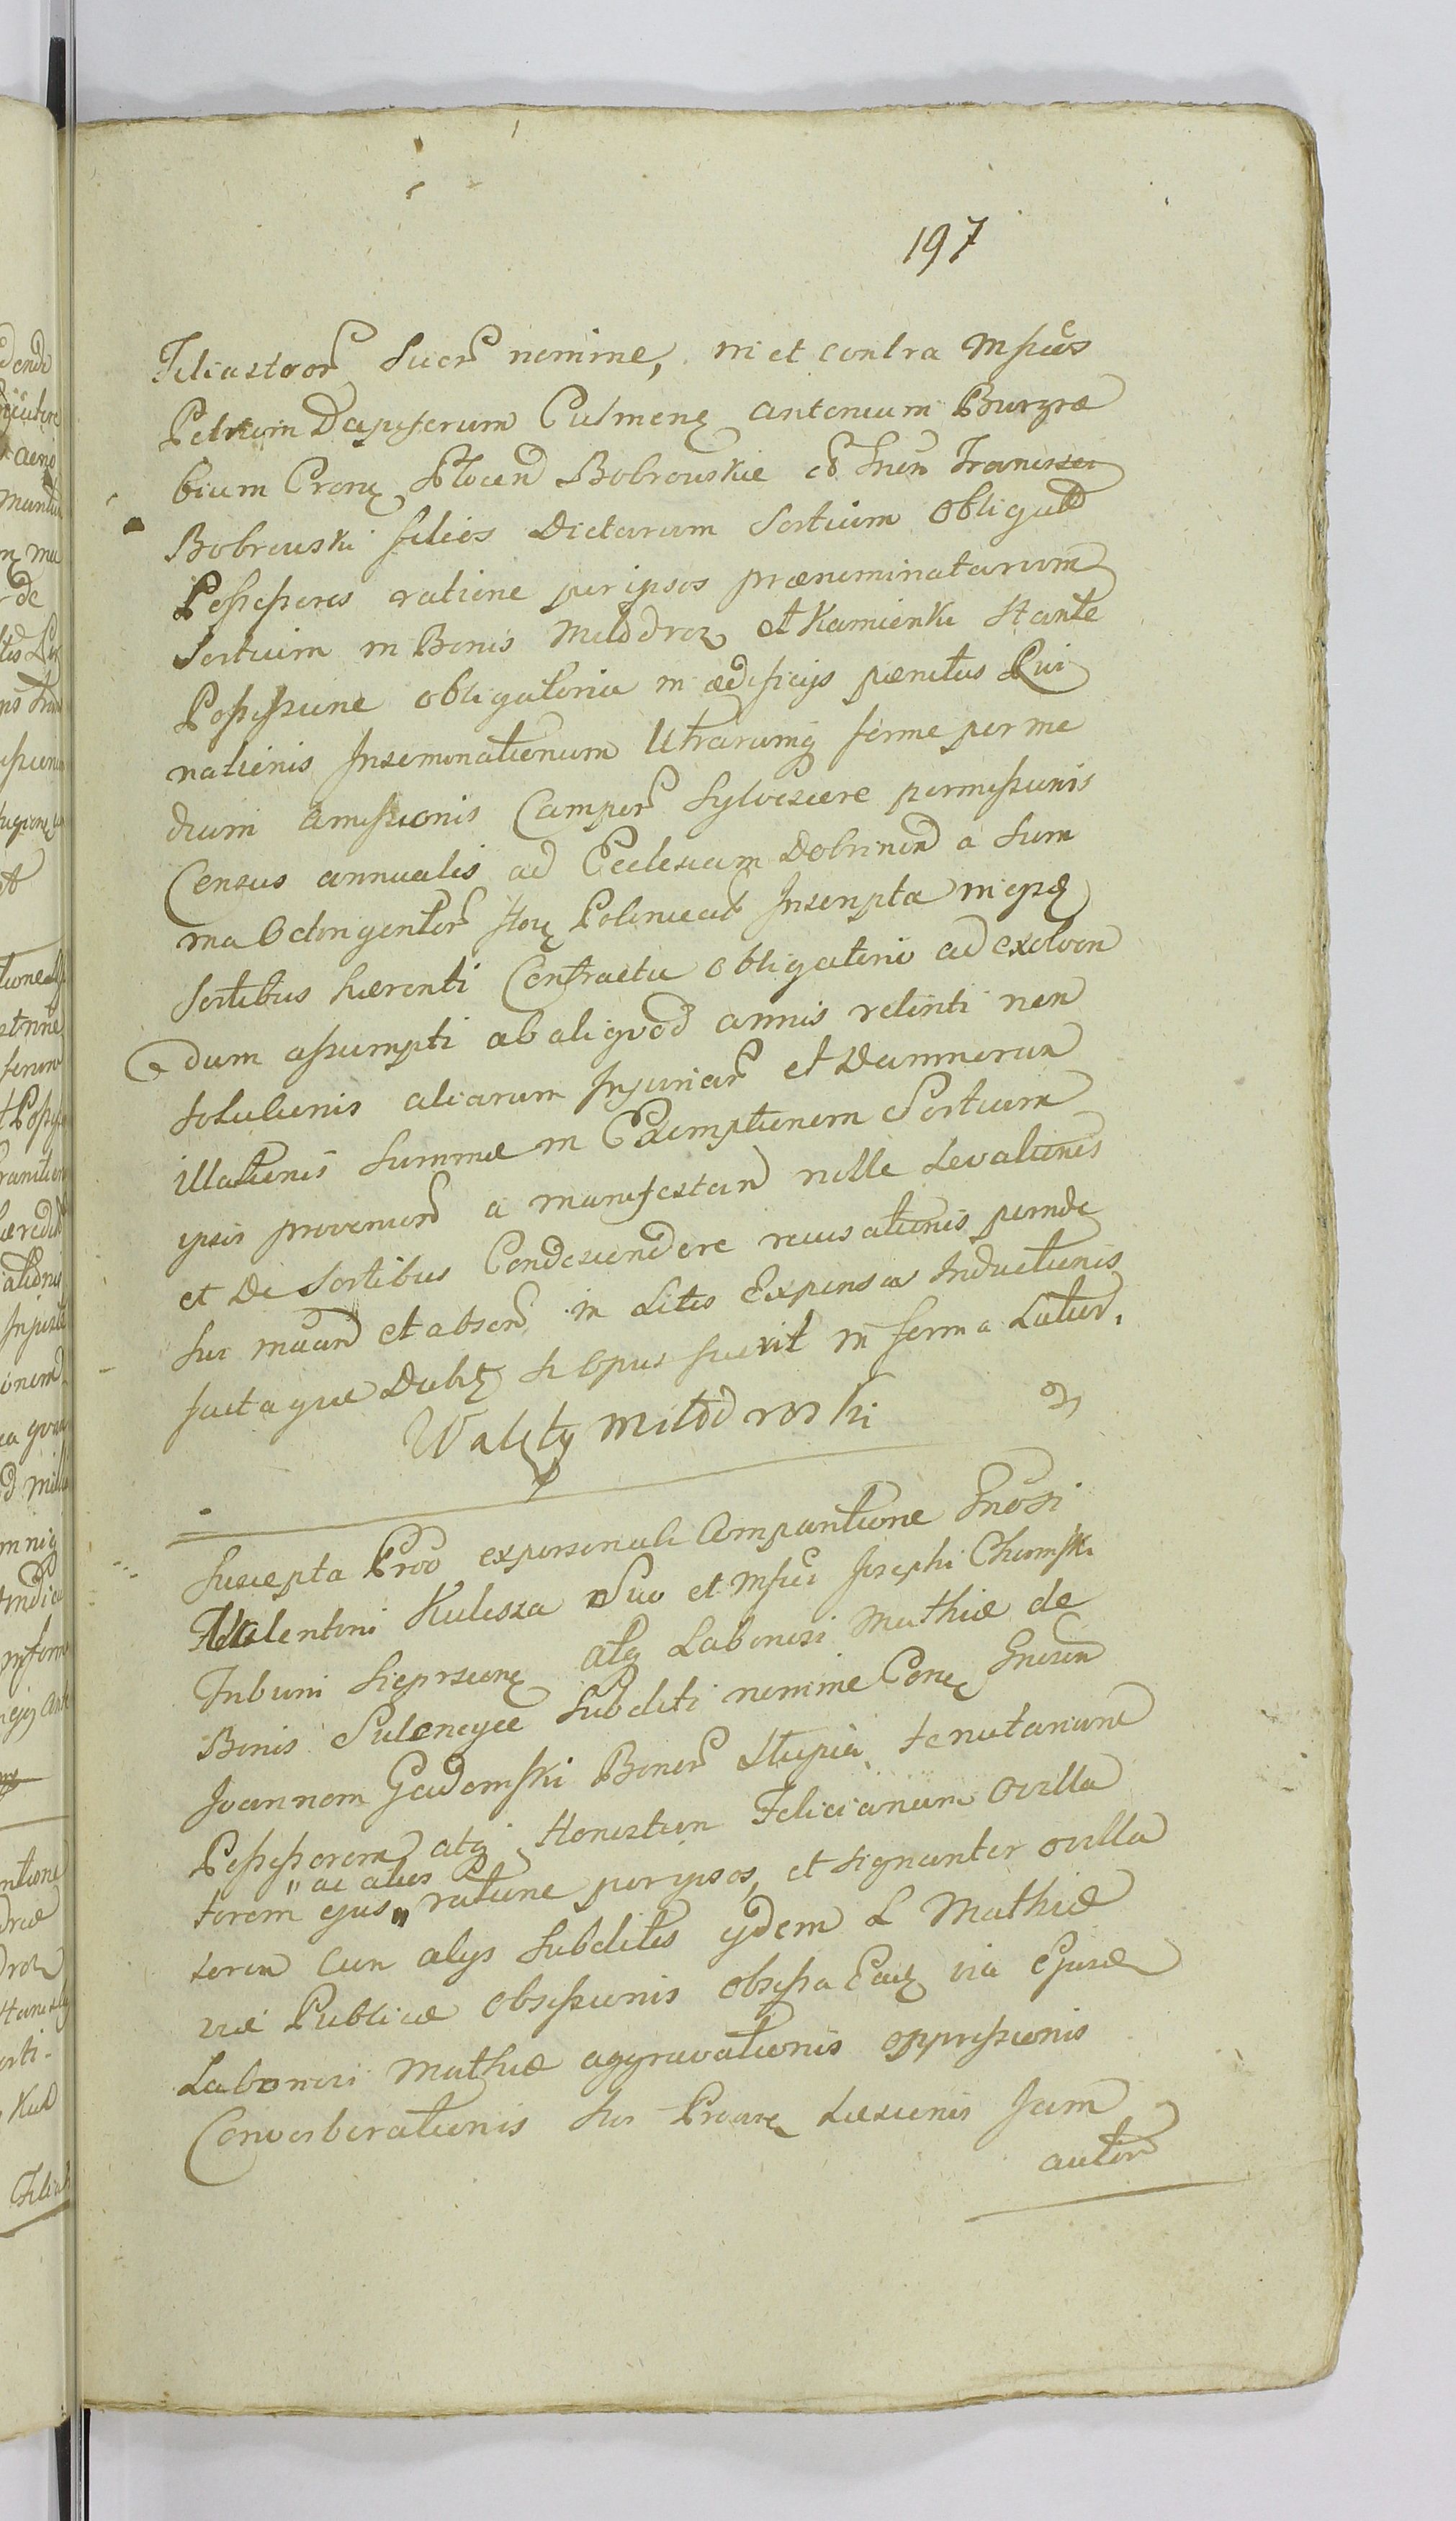 197
Filiastror Suor nomine, in et contra Mficos
Petrum Dapiferum Culmenę Antonium Burgra
bium Cronę Płocen Bobrowskie et Gnen Francisci
Bobrowski filios Dictarum Sortium Obligato
Possessores ratione per ipsos prænominatarum
Sortium in Bonis Miłodroz et Kamienki Stante
Possessione obligatoria in ædificijs pænitus Rui
nationis Inseminationum Utrarumq ferme per me
dium amissionis Campor Sylvescere permissionis
Census annualis ad Ecclesiam Dobrinen a Sum
ma Octongentor flor Polonical Inscripta in ipsis
Sortibus hærenti Contractu obligatorio ad exolven
dum assumpti ab aliquod annis retenti non
Solutionis aliarum Injuriar et Damnorum
illationis Summæ in Exemptionem Sortium
ipsis provenien a manifestan nolle Levationis
et De Sortibus Condescendere recusationis perinde
Sui maan et absen in Litis Expensa Inductionis
facta que Dubit si Opus fuerit in forma Latiori.
Walęty Miłodroski
Suscepta Prod ex personali Comparitione Gnosi
Valentini Kulesza Suo et Mfici Josephi Chromski
Tribuni Sieprscenę atq Laboriosi Mathiæ de
Bonis Sulencyce Subditi nomine Conę Gnosum
Joannem Gadomski Bonor Słupia tenutarium
Possessorem atq Honestum Felicianum Ovilla
torem ejus " ac alios " ratione per ipsos, et signanter ovilla
torem Cum alijs Subditis ijdem L Mathiæ
viæ Publicæ Obsessionis obsessa Eatz via Ejusd
Laboriosi Mathiæ aggravationis oppressionis
Converberationis Sui Læsionis Jam
autor